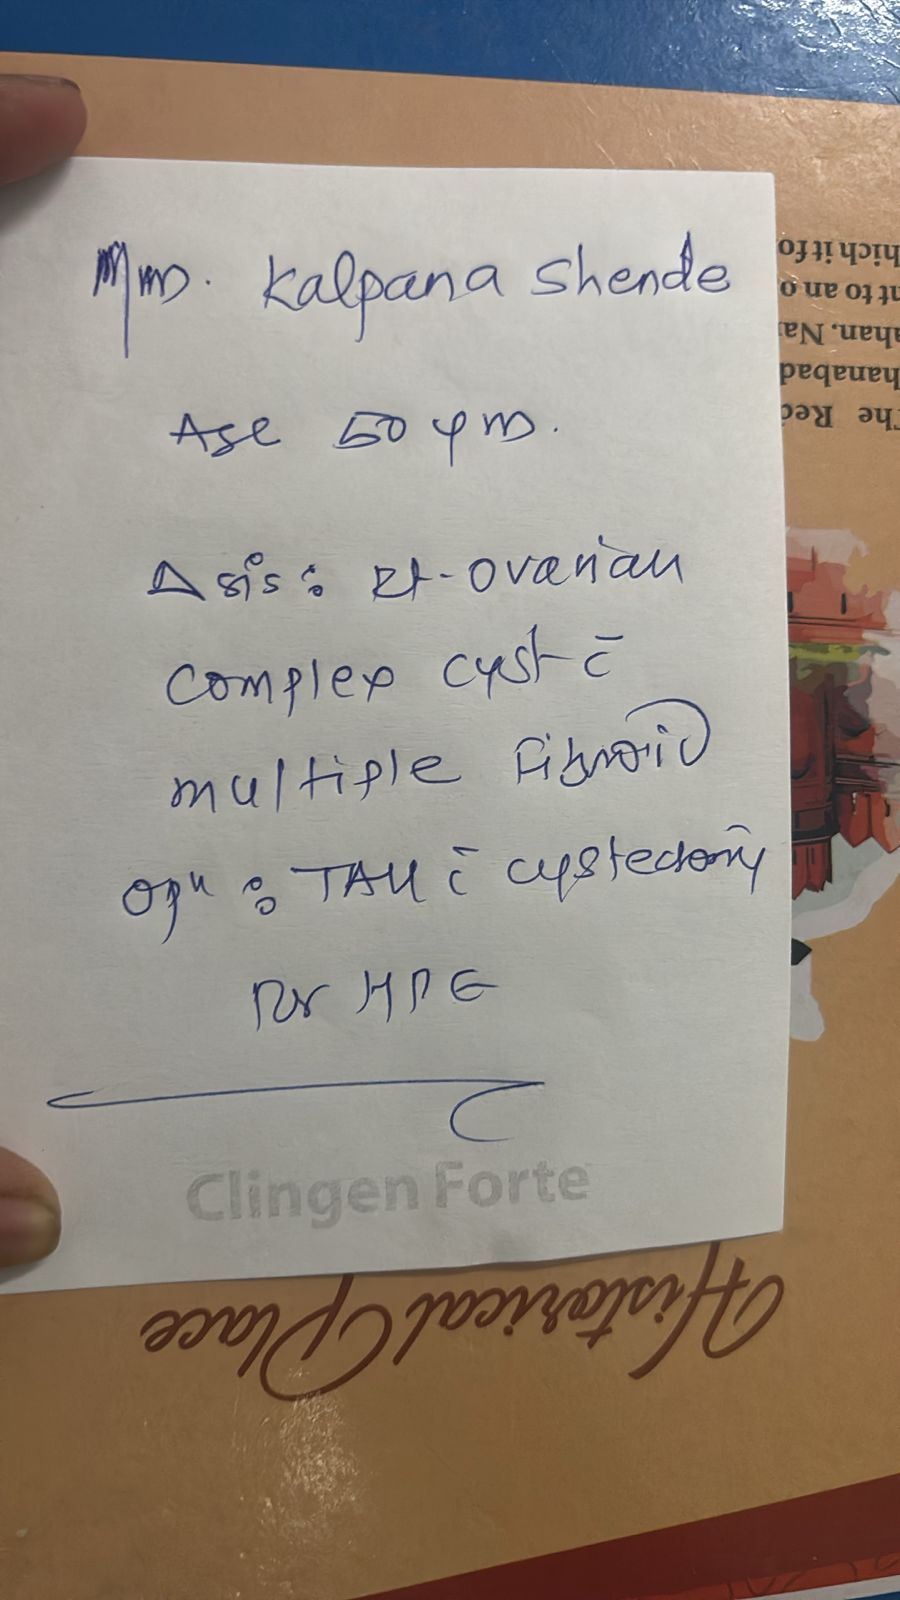 Mrs. Kalpana Shende
Age 50 yrs.
Δsis: Rt-ovarian
complex cyst c̄
multiple Fibroid
Opn : TAH c̄ cystectomy
For HPE
Clingen Forte
Historical Place
which it fo
nt to an o
ahan. Na
hanabad
The Red